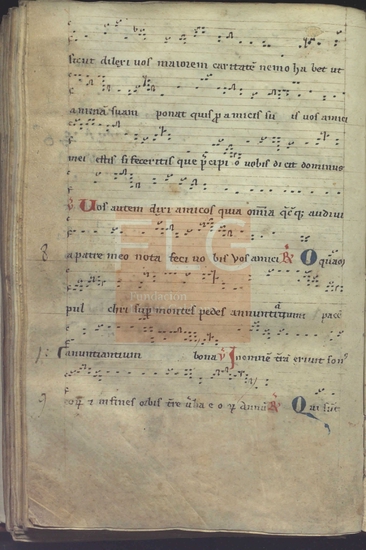 sicut dilexi vos maiorem caritatē nemo ha bet ut
animā suam ponat quis p amicis su is vos amici
mei estis si feceritis que p̄cipi o vobis dicit dominus
℣ Vos autem dixi amicos quia om̄ia q̄cq; audivi
a patre meo nota feci vo bis Vos amici ℟ O quā
pul chri sup montes pedes annuntiantium pacē
annuntiantium bona ℣ In omnē trā exivit son
eoꝝ ⁊ in fines orbis tre v̄ba eoꝝ Annū ℟ Qui sūt
FLG
Fundación